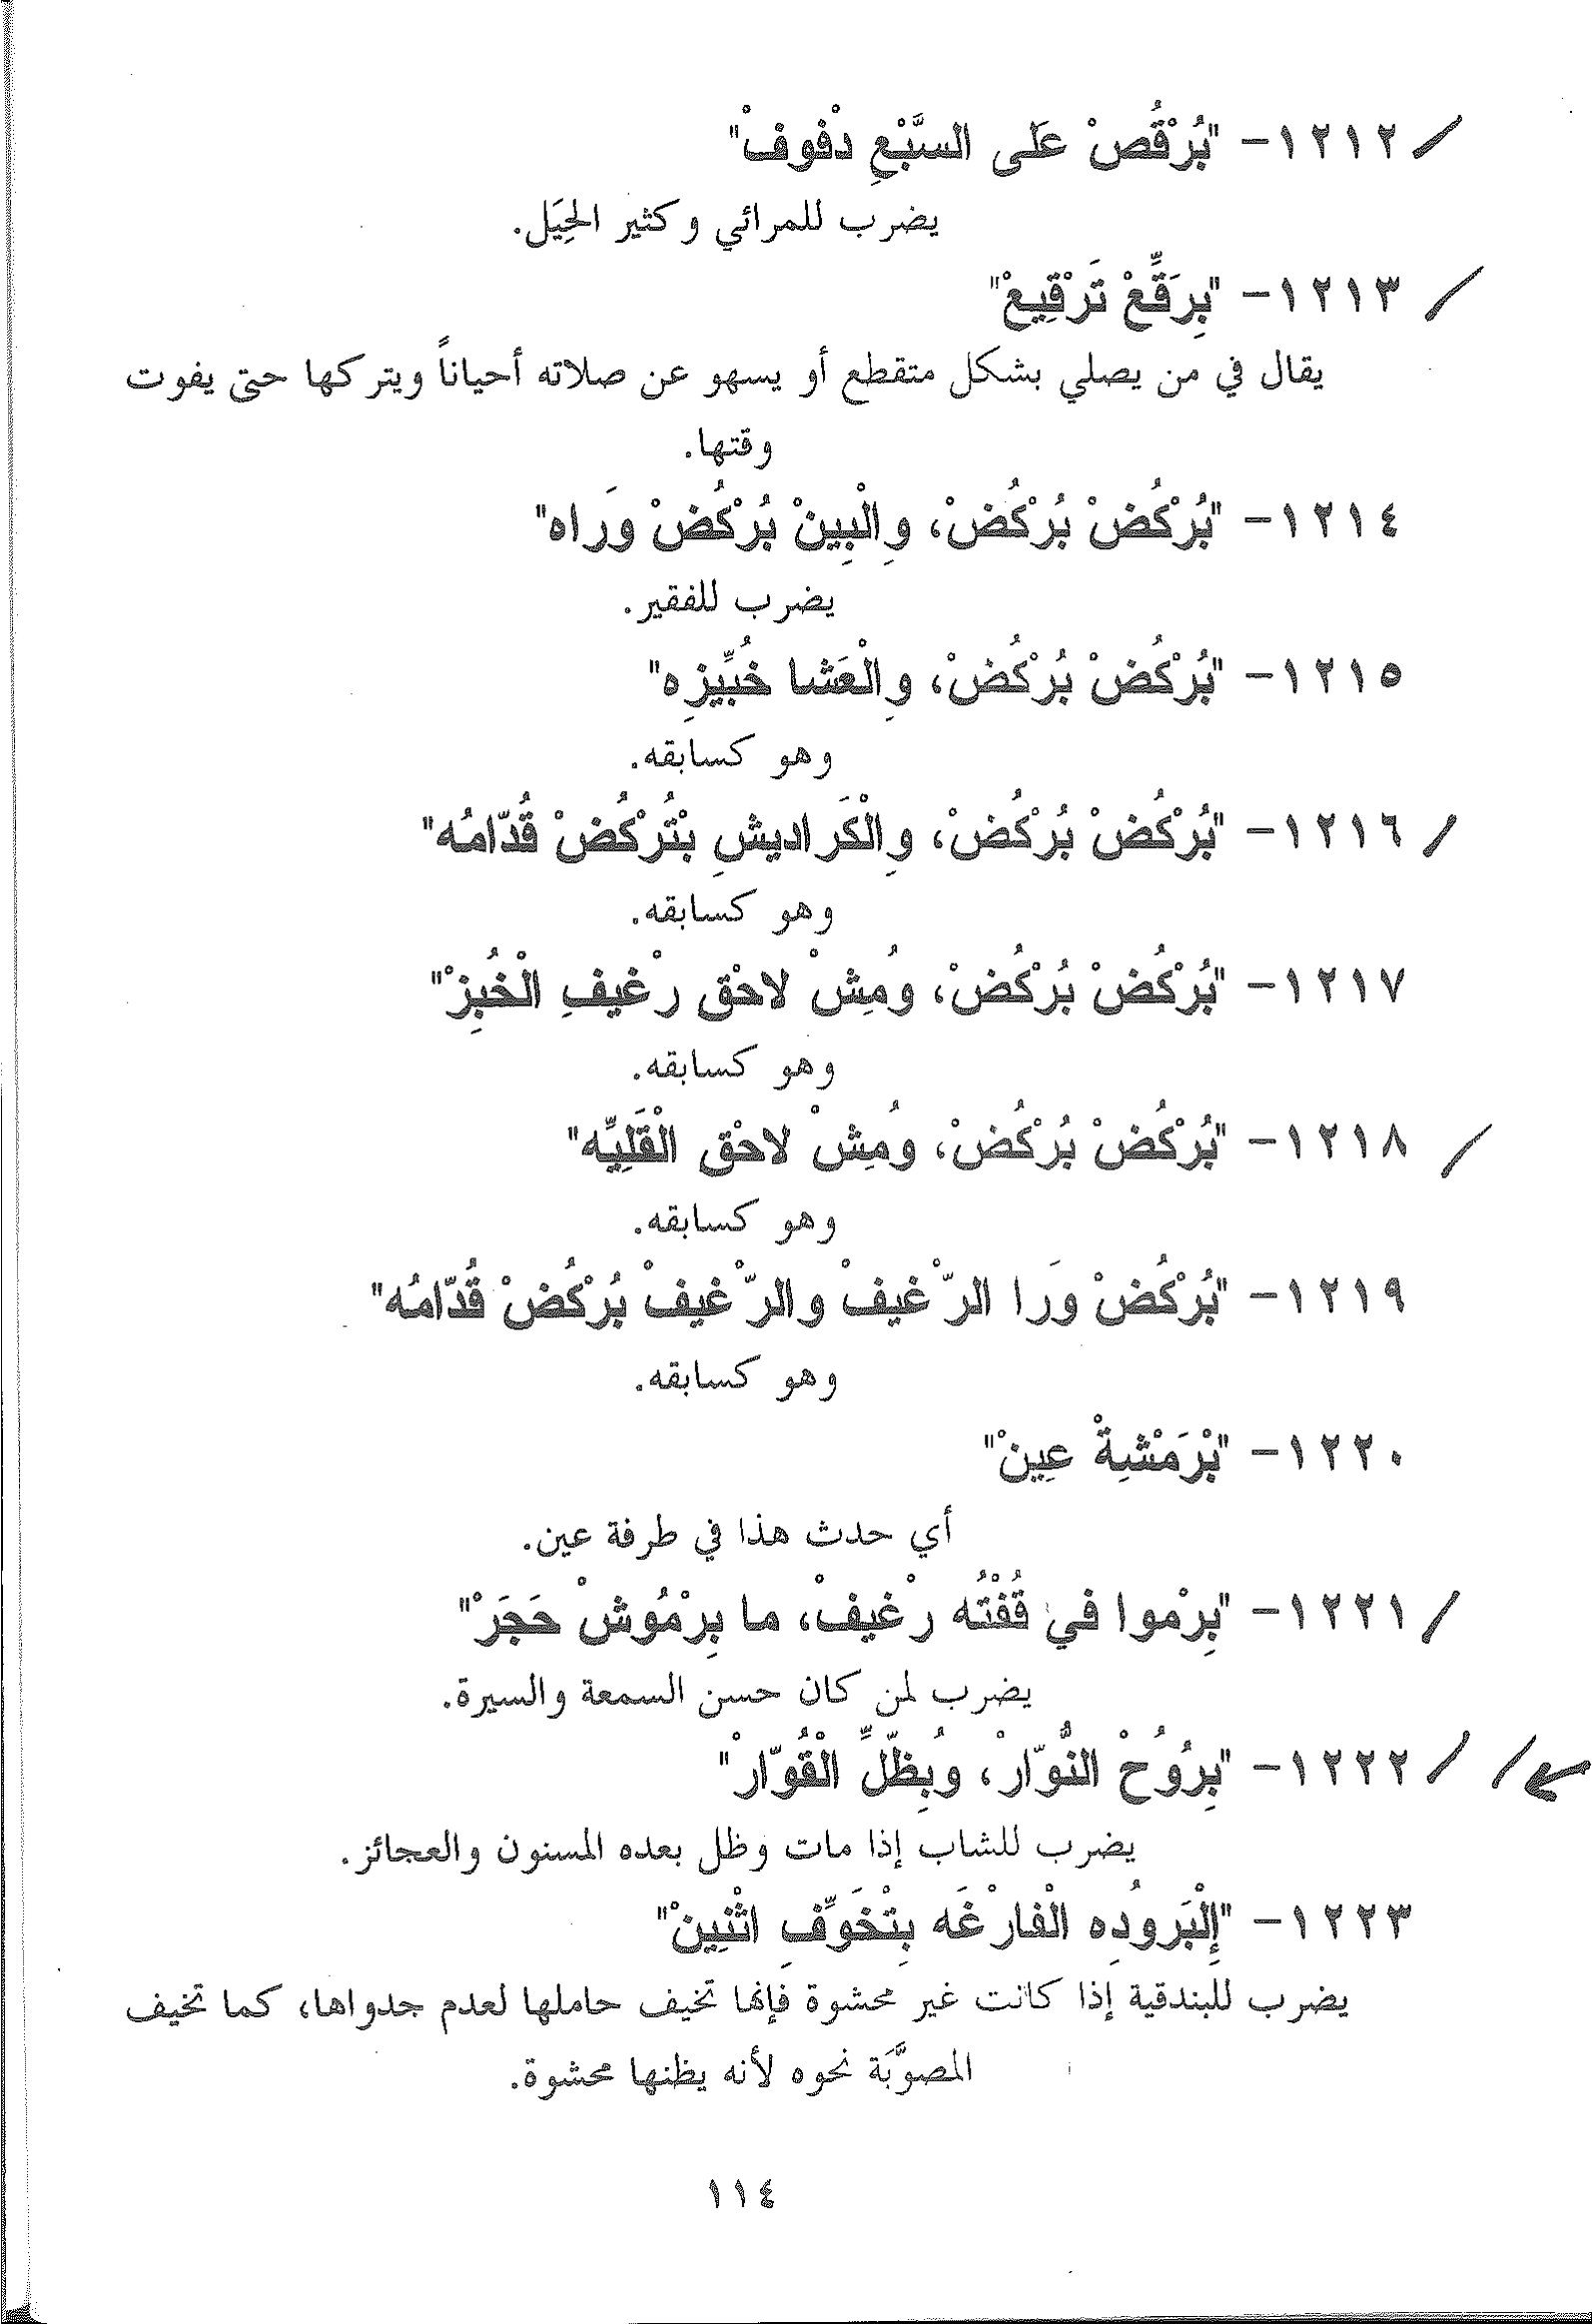 ١٢١٢- "بُرْقُصْ عَلى السَّبْعِ دْفوفْ"
يضرب للمرائي وكثير الحِيَل.
١٢١٣- "بِرَقِّعْ تَرْقِيعْ"
يقال في من يصلي بشكل متقطع أو يسهو عن صلاته أحياناً ويتركها حتى يفوت
وقتها.
١٢١٤- "بُرْكُضْ بُرْكُضْ، وِالْبِينْ بُرْكُضْ وَراه"
يضرب للفقير.
١٢١٥- "بُرْكُضْ بُرْكُضْ، وِالْعَشا خُبِّيزِه"
وهو كسابقه.
١٢١٦- "بُرْكُضْ بُرْكُضْ، وِالْكَراديشِ بْتُرْكُضْ قُدّامُه"
وهو كسابقه.
١٢١٧- "بُرْكُضْ بُرْكُضْ، وُمِشْ لاحْق رْغيفِ الْخُبِزْ"
وهو كسابقه.
١٢١٨- "بُرْكُضْ بُرْكُضْ، وُمِشْ لاحْق الْقَلِيِّه"
وهو كسابقه.
١٢١٩- "بُرْكُضْ وَرا الرّْغيفْ والرّْغيفْ بُرْكُضْ قُدّامُه"
وهو كسابقه.
١٢٢٠- "بْرَمْشِةْ عِينْ"
أي حدث هذا في طرفة عين.
١٢٢١- "بِرْموا في قُفْتُه رْغيفْ، ما بِرْمُوشْ حَجَرْ"
يضرب لمن كان حسن السمعة والسيرة.
١٢٢٢- "بِرُوُحْ النُّوّارْ، وُبِظّلِّ الْقُوّارْ"
يضرب للشاب إذا مات وظل بعده المسنون والعجائز.
١٢٢٣- "إِلْبَرودُِه الْفارْغَه بِتْخَوِّفِ اثْنِينْ"
يضرب للبندقية إذا كانت غير محشوة فإنها تخيف حاملها لعدم جدواها، كما تخيف
المصوَّبَة نحوه لأنه يظنها محشوة.
١١٤